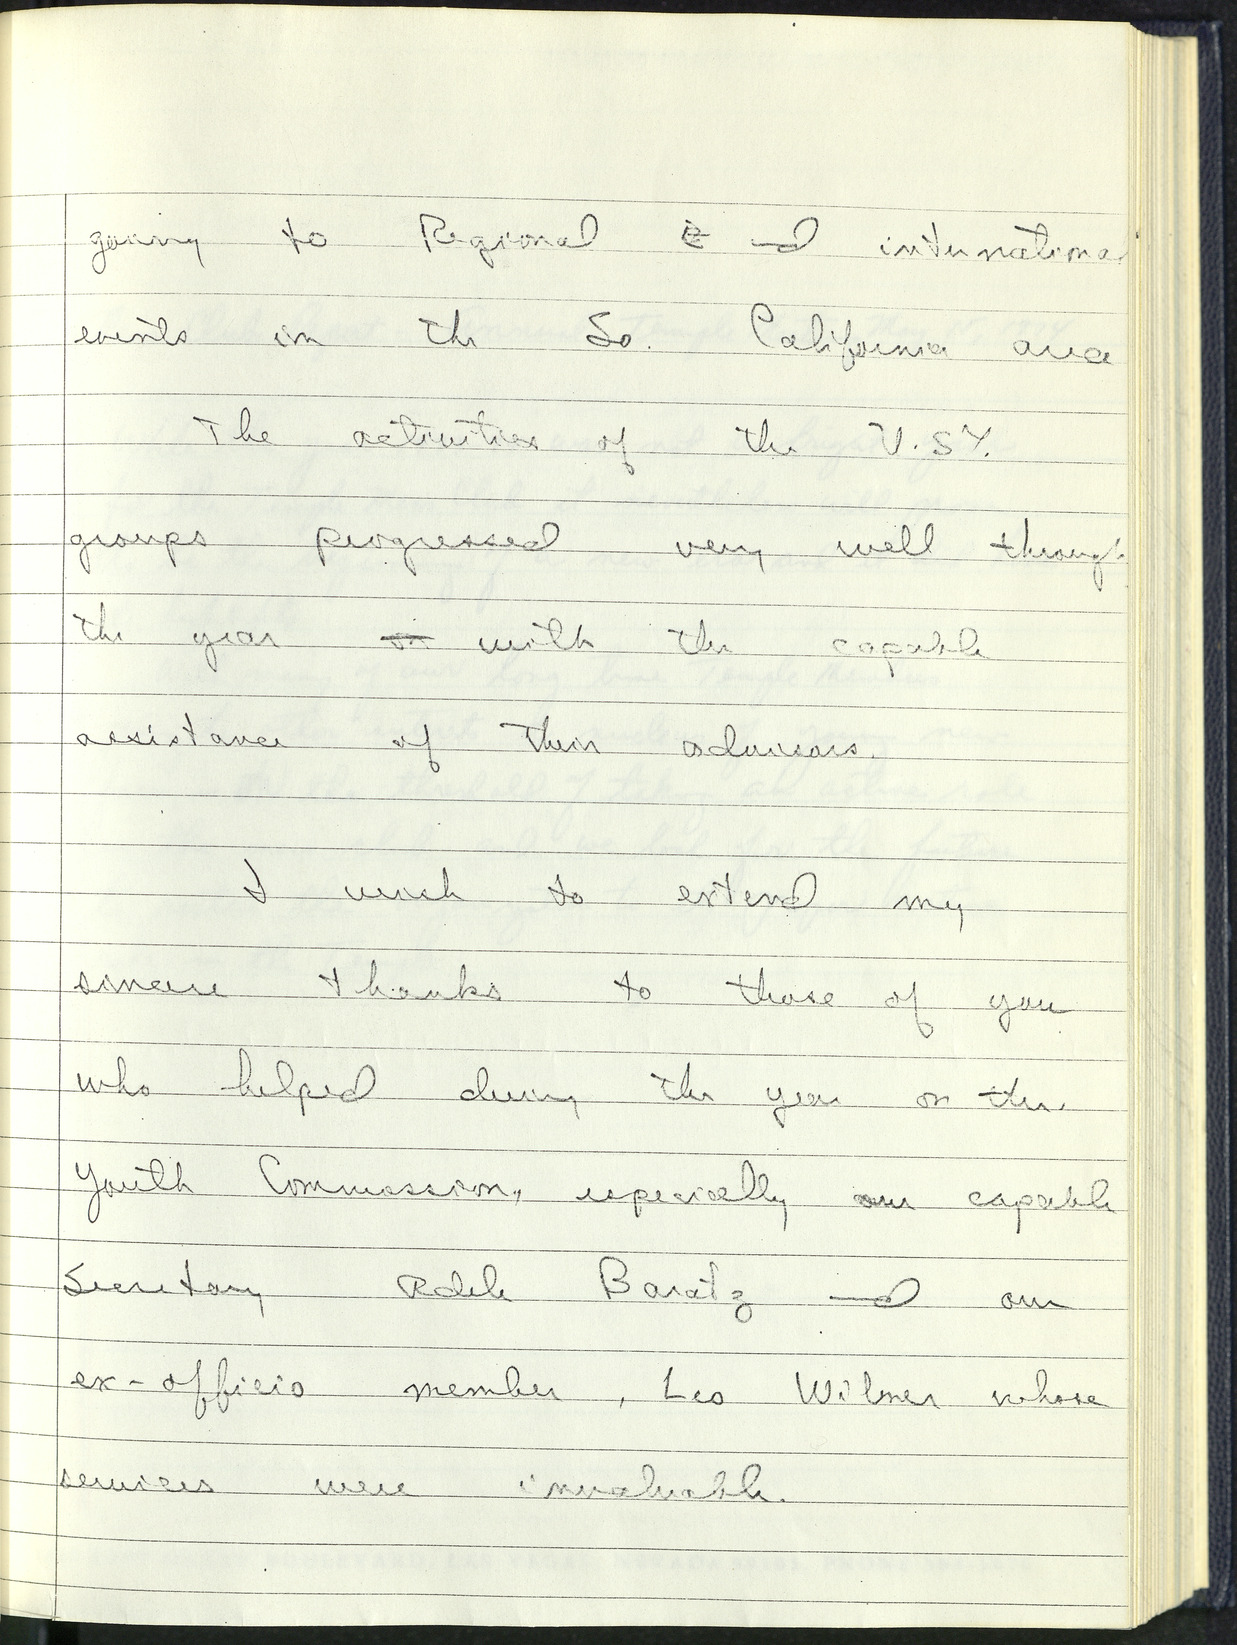 going to Regional and international
events in the So. California area
The activities of the U.S.Y.
groups progressed very well through
the year with the capable
assistance of their advisors.
I wish to extend my
sincere thanks to those of you
who helped during the year on the
Youth Commission, especially our capable
Secretary Adele Baratz and our
ex-officio member, Leo Wilner whose
services were invaluable.